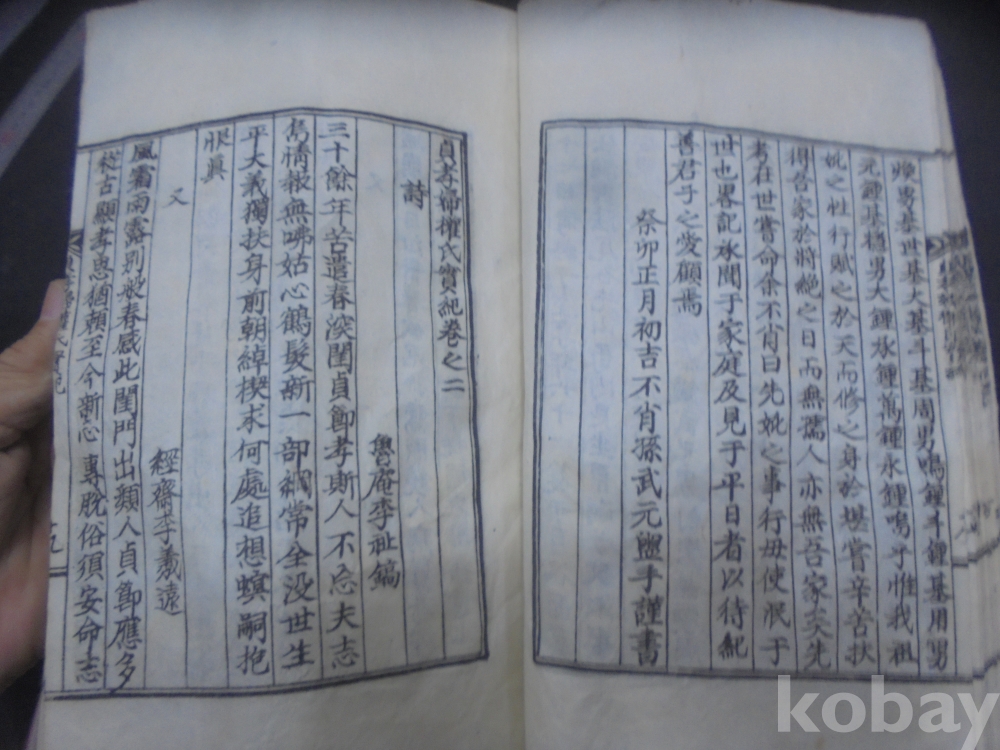 煥男基世基大基斗基周男鳴鍾斗鍾基用男
元鍾基植男大鍾氷鍾萬鍾永鍾嗚乎惟我祖
妣之性行賦之於天而修之身於堪嘗辛苦扶
得吾家於將絕之日而無孺人亦無吾家矣先
考在世嘗命余不肖曰先妣之事行毋使泯于
世也畧記承聞于家庭及見于平日者以待紀
善君子之愛顧焉
癸卯正月初吉不肖孫武元盥手謹書
貞孝婦權氏實紀卷之二
詩
魯庵李祉鎬
三十餘年苦遣春深閨貞節孝斯人不忘夫志
雋情報無咈姑心鶴髮新一部綱常全没世生
平大義獨扶身前朝綽楔求何處追想螟嗣抱
恨眞
又
經齋李義遠
風霜雨露别般春感此閨門出類人貞節應多
從古顯孝思猶賴至今新心專脫俗須安命志
十九
kobay